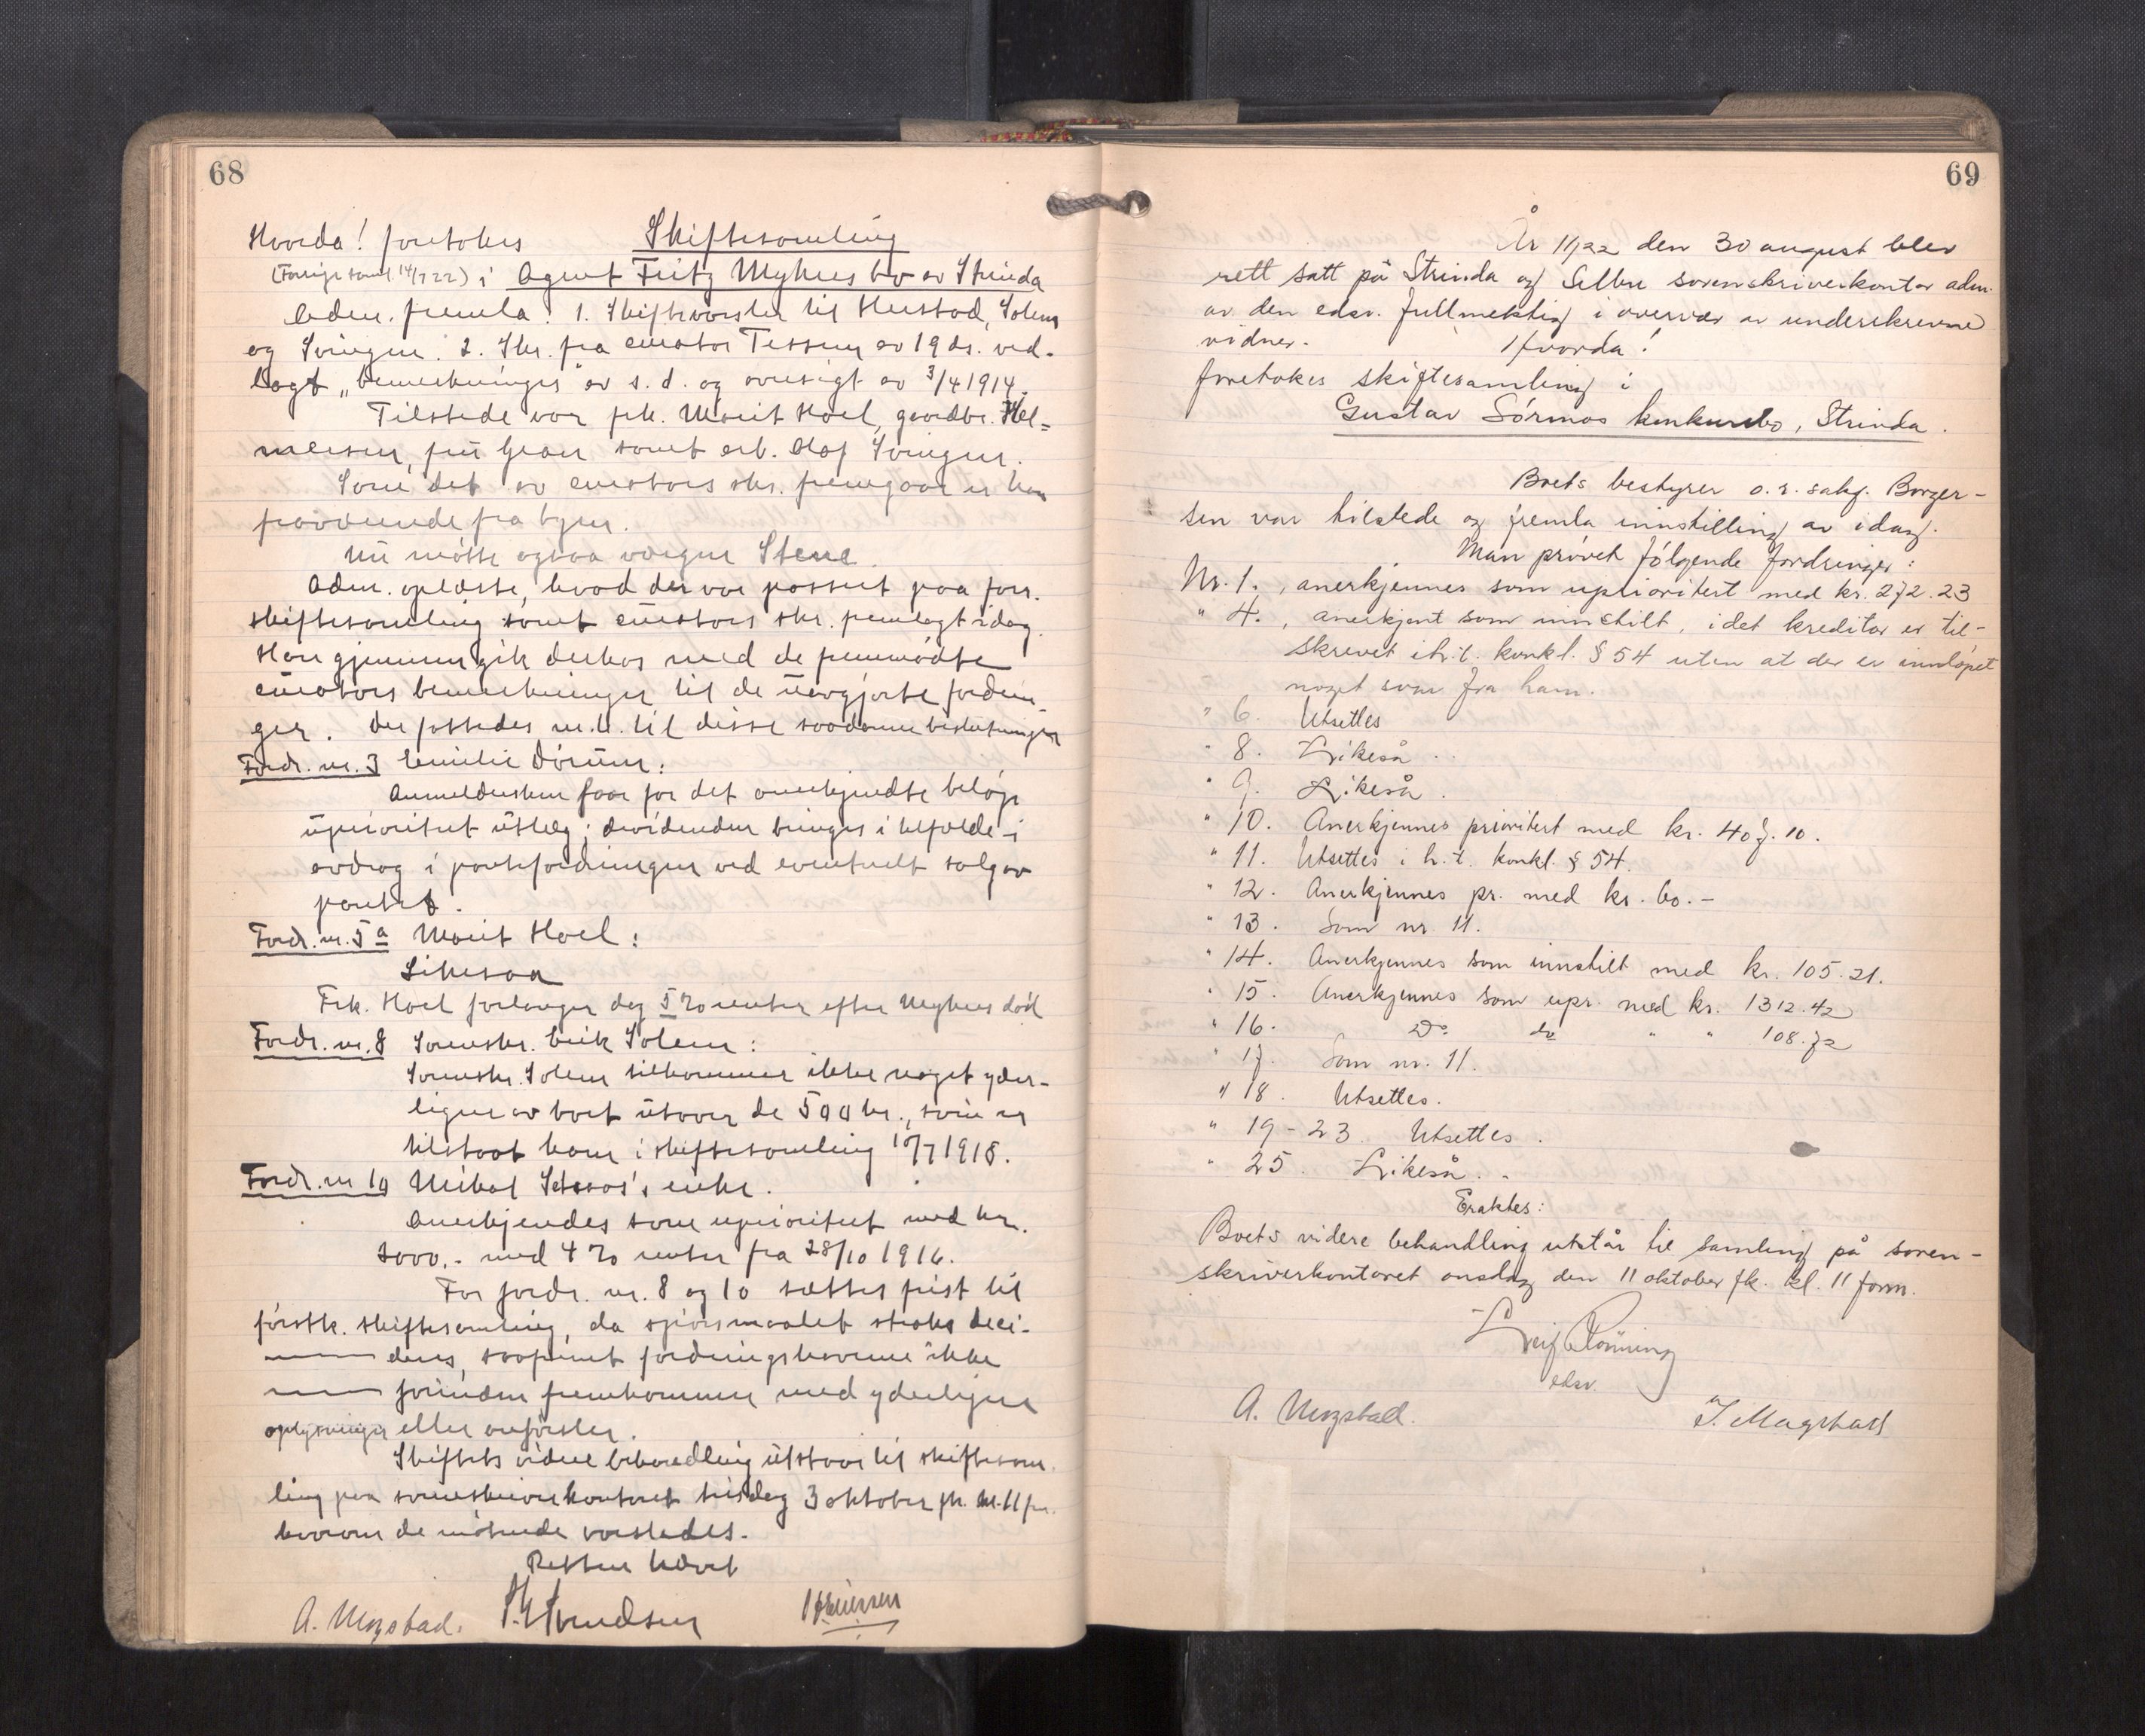 68
Hvorda! foretokes Skiftesamling
(Forrige saml. 14/7 22) i Agent Fritz Myhres bo av Strinda
Adm. fremla: 1. Skiftevarsler til Hustad, Solem
og Svingen. 2. Skr. fra curator Tessem av 19 ds. ved-
lagt "bemerkninger" av s. d. og oversigt av 3/4 1914.
Tilstede var frk. Marit Hoel, gaardbr. Hel-
mersen, fru Gran samt arb. Olaf Svingen.
Som det av curators skr. fremgaar er han
fraværende fra byen.
Nu møtte ogsaa værgen Stene.
Adm. oplæste, hvad der var passert paa forr.
skiftesamling samt curators skr. fremlagt idag.
Han gjennemgik derhos med de fremmødte
curators bemerkninger til de uavgjorte fordrin-
ger. Der fattedes m.h.t. til disse saadanne beslutninger
Fordr. nr. 3 Emilie Dørum:
Anmeldersken faar for det anerkjendte beløp
uprioritert utlæg; dividenden bringes i tilfælde i
avdrag i pantefordringen ved eventuelt salg av
pantet.
Fordr. nr. 5a Marit Hoel:
Likesaa
Frk. Hoel forlanger dog 5 % renter efter Myhres död
Fordr. nr. 8 Sorenskr. Erik Solem:
Sorenskr. Solem tilkommer ikke noget yder-
ligere av boet utover de 500 kr., som er
tilstaat ham i skiftesamling 10/7 1918.
Fordr. nr 10 Mikal Setsaas's enke.
Anerkjendes som uprioritert med kr.
2000.- med 4 % renter fra 28/10 1916.
For fordr. nr. 8 og 10 sættes frist til
førstk. skiftesamling, da spörsmaalet straks deci-
deres, saafremt fordringshaverne ikke
forinden fremkommer med yderligere
oplysninger eller anførsler.
Skiftets videre behandling utstaar til skiftesam-
ling paa sorenskriverkontoret tirsdag 3 oktober fk. kl. 11 fm.
hvorom de møtende varsledes.
Retten hævet
A. Mogstad.
69
År 1922 den 30 august blev
rett satt på Strinda og Selbu sorenskriverkontor adm.
av den edsv. fullmektig i overvær av underskrevne
vidner. Hvorda!
foretokes skiftesamling i
Gustav Sørmos konkursbo, Strinda.
Boets bestyrer o.r.sakf. Borger-
sen var tilstede og fremla innstilling av idag.
Man prøvet følgende fordringer:
Nr. 1., anerkjennes som uprioritert med kr. 272.23
" 4., anerkjent som innstilt, idet kreditor er til-
skrevet i h.t. konkl. § 54 uten at der er innløpet
noget svar fra ham.
" 6. Utsettes
" 8. Likeså.
" 9. Likeså.
" 10. Anerkjennes prioritert med kr. 407.10.
" 11. Utsettes i h.t. konkl. § 54.
" 12. Anerkjennes pr. med kr. 60.-
" 13. Som nr. 11.
" 14. Anerkjennes som innstilt med kr. 105.21.
" 15. Anerkjennes som upr. med kr. 1312.42
" 16. Do do " " 108.72
" 17. Som nr. 11.
" 18. Utsettes.
" 19-23. Utsettes.
" 25. Likeså.
Eraktes:
Boets videre behandling utstår til samling på soren-
skriverkontoret onsdag den 11 oktober fk. kl. 11 form.
Leif Rönning
edsv.
A. Mogstad. S. Mogstad